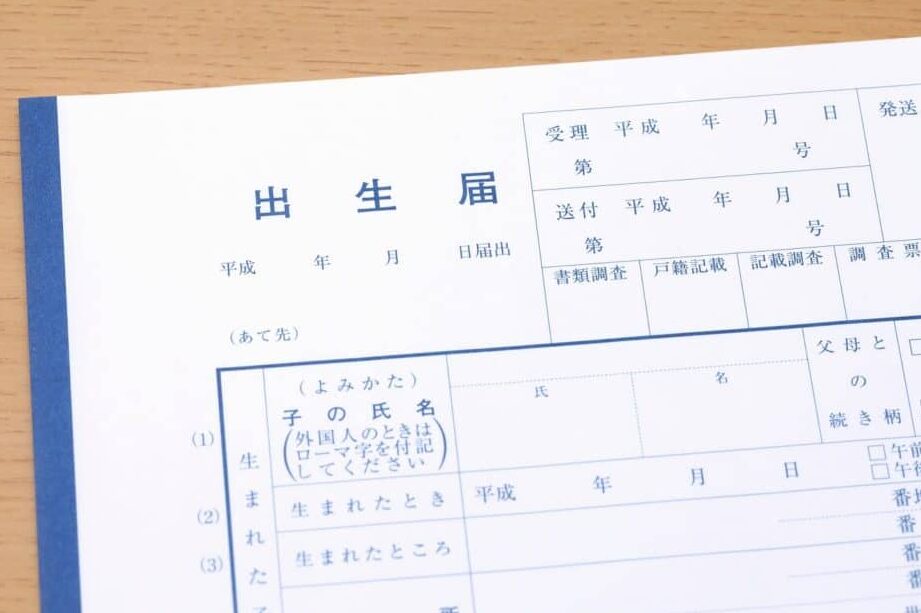 受理 平成 年 月 日
第 号
発送
出生届
送付 平成 年 月 日
第 号
平成 年 月 日届出
書類調査 戸籍記載 記載調査 調査票
(あて先)
(1)
(よみかた)
子の氏名
(外国人のときは
ローマ字を付記
してください)
氏 名
父母と
の
続き柄
(2)
生まれたとき
平成 年 月 日
□午前
□午後
(3)
生まれたところ
番地
番
番
生まれた子